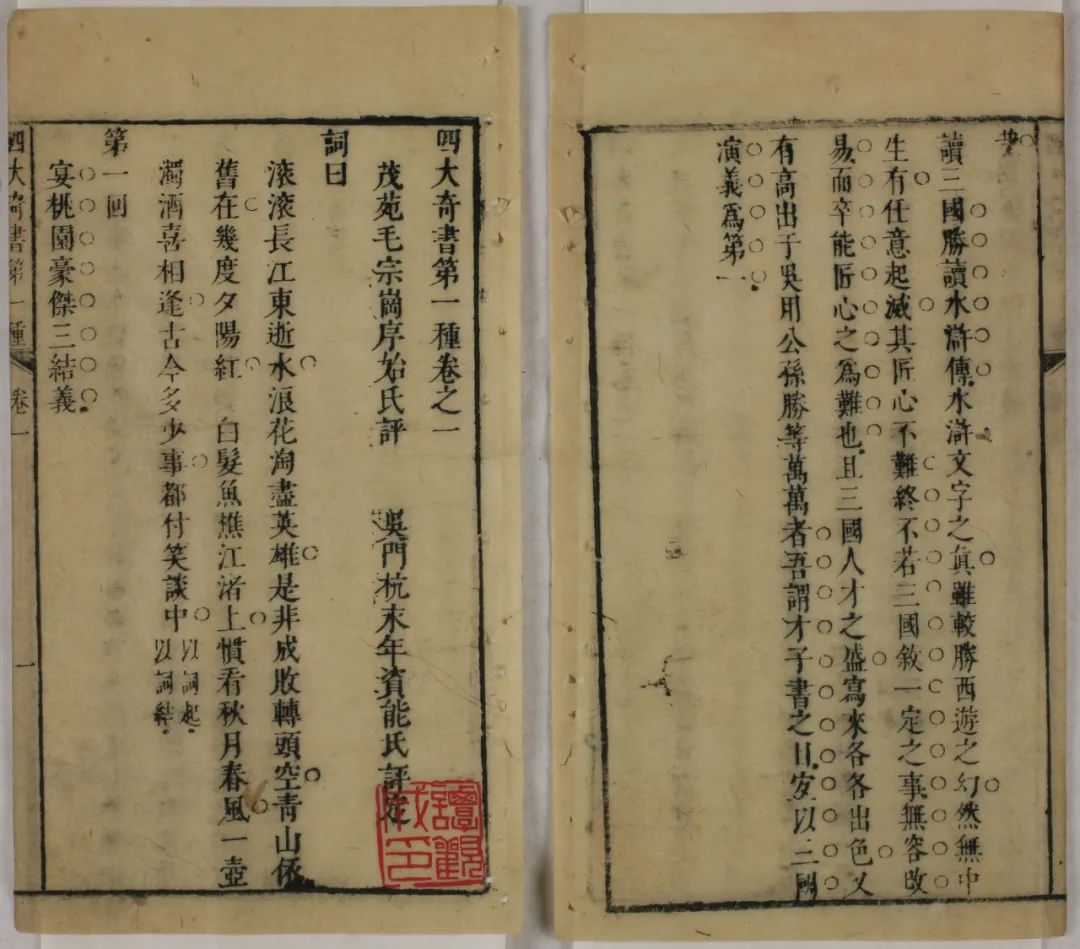 讀三國勝讀水滸傳水滸文字之真雖較勝西遊之幻然無中
生有任意起滅其匠心不難終不若三國敘一定之事無容改
易而卒能匠心之爲難也且三國人才之盛寫來各各出色又
有高出于吳用公孫勝等萬萬者吾謂才子書之目宜以三國
演義爲第一
四大奇書第一種卷之一
茂苑毛宗崗序始氏評 吳門杭永年資能氏評定
詞曰
滾滾長江東逝水浪花淘盡英雄是非成敗轉頭空青山依
舊在幾度夕陽紅 白髮魚樵江渚上慣看秋月春風一壺
濁酒喜相逢古今多少事都付笑談中 以詞起
以詞結
第一回
宴桃園豪傑三結義
四大奇書第一種 卷一 一